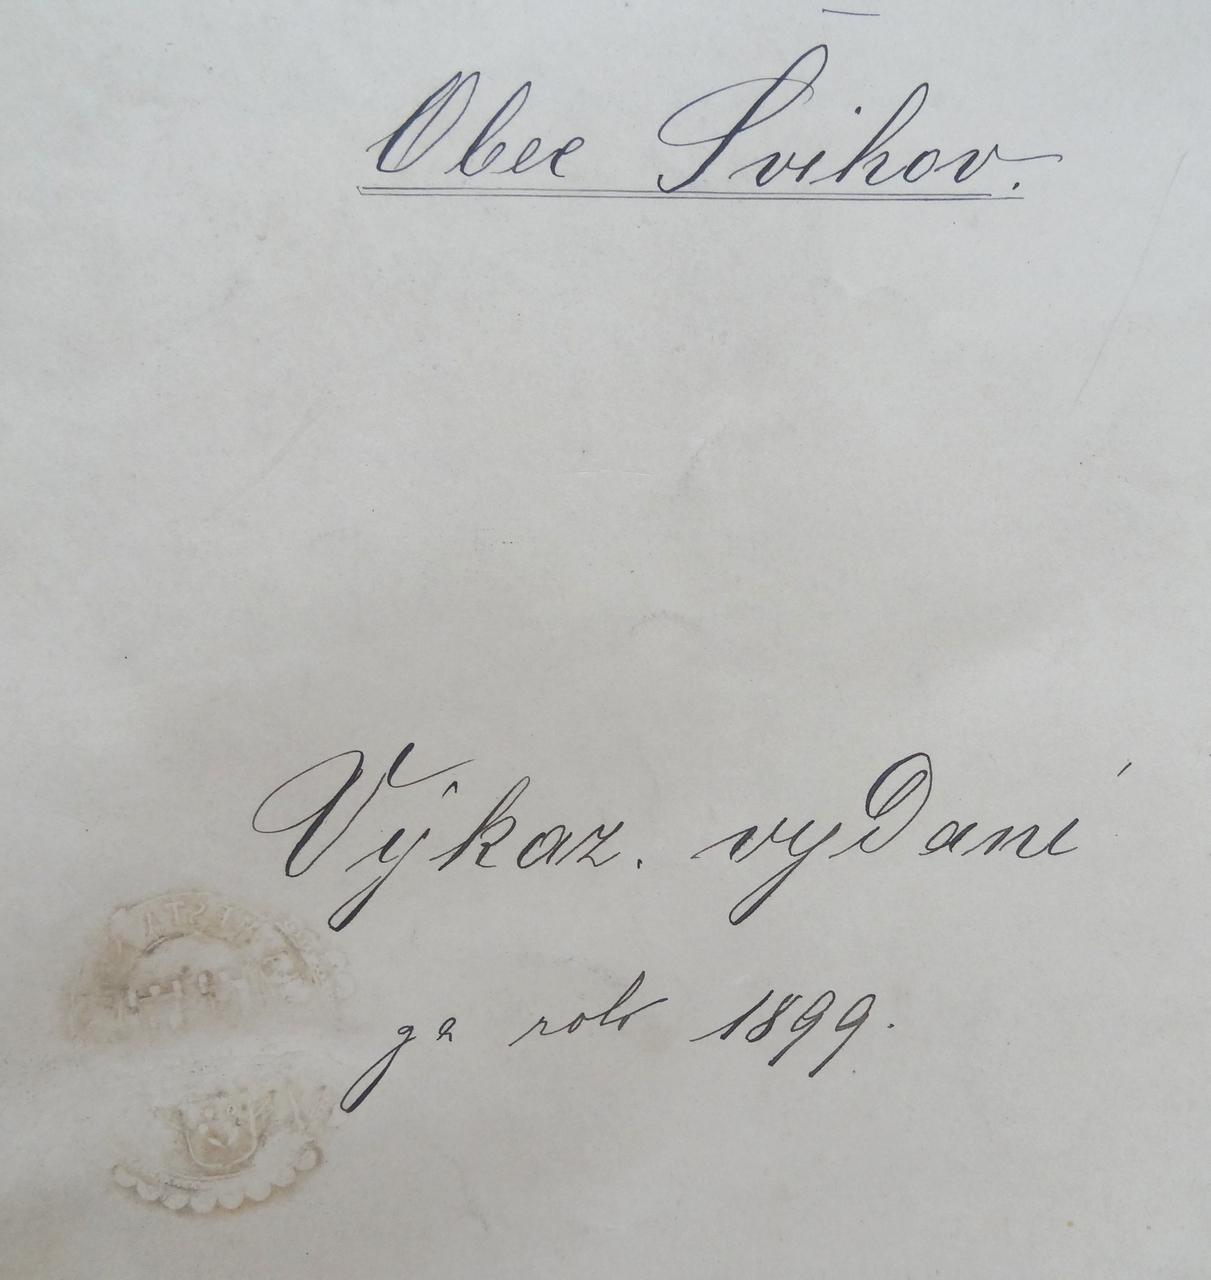 Obec Švihov.
Výkaz. vydání
za rok 1899.